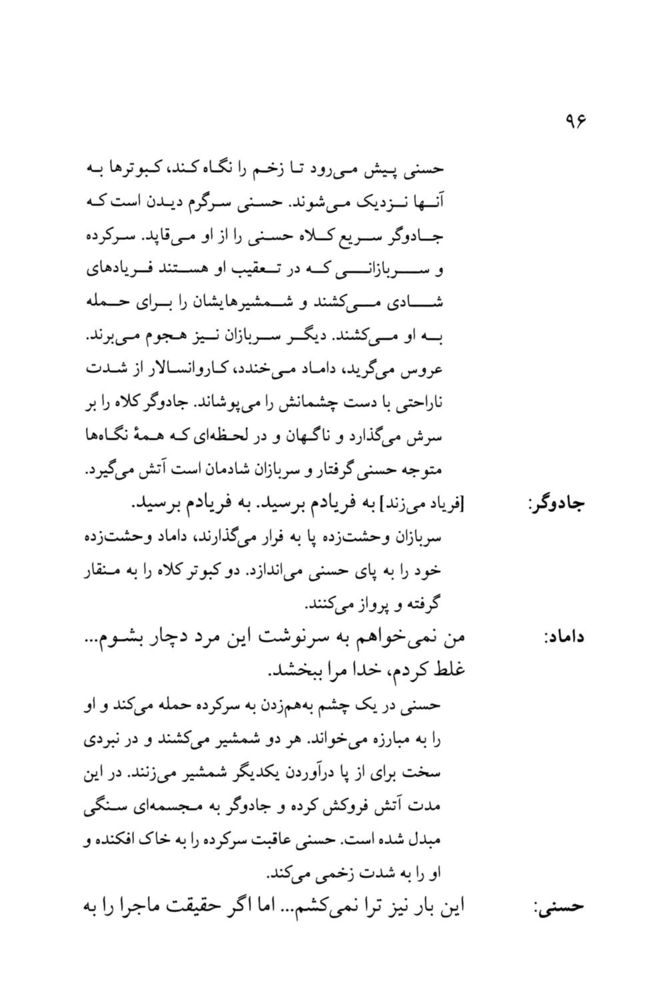 ۹۶
حسنی پیش می‌رود تا زخم را نگاه کند، کبوترها به
آنها نزدیک می‌شوند. حسنی سرگرم دیدن است که
جادوگر سریع کلاه حسنی را از او می‌قاپد. سرکرده
و سربازانی که در تعقیب او هستند فریادهای
شادی می‌کشند و شمشیرهایشان را برای حمله
به او می‌کشند. دیگر سربازان نیز هجوم می‌برند.
عروس می‌گرید، داماد می‌خندد، کاروانسالار از شدت
ناراحتی با دست چشمانش را می‌پوشاند. جادوگر کلاه را بر
سرش می‌گذارد و ناگهان و در لحظه‌ای که همهٔ نگاه‌ها
متوجه حسنی گرفتار و سربازان شادمان است آتش می‌گیرد.
جادوگر: [فریاد می‌زند] به فریادم برسید. به فریادم برسید.
سربازان وحشت‌زده پا به فرار می‌گذارند، داماد وحشت‌زده
خود را به پای حسنی می‌اندازد. دو کبوتر کلاه را به منقار
گرفته و پرواز می‌کنند.
داماد: من نمی‌خواهم به سرنوشت این مرد دچار بشوم...
غلط کردم، خدا مرا ببخشد.
حسنی در یک چشم به‌هم‌زدن به سرکرده حمله می‌کند و او
را به مبارزه می‌خواند. هر دو شمشیر می‌کشند و در نبردی
سخت برای از پا درآوردن یکدیگر شمشیر می‌زنند. در این
مدت آتش فروکش کرده و جادوگر به مجسمه‌ای سنگی
مبدل شده است. حسنی عاقبت سرکرده را به خاک افکنده و
او را به شدت زخمی می‌کند.
حسنی: این بار نیز ترا نمی‌کشم... اما اگر حقیقت ماجرا را به